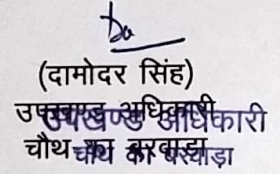 (दामोदर सिंह)
उपखण्ड अधिकारी
चौथ का बरवाड़ा
उपखण्ड अधिकारी
चौथ का बरवाड़ा